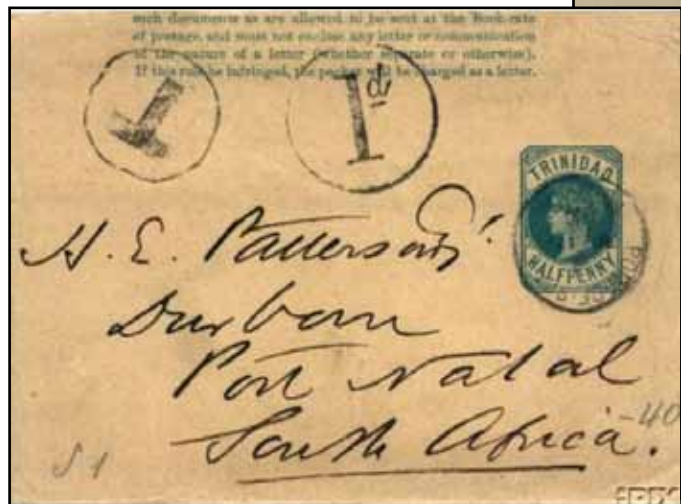 such documents as are allowed to be sent at the Book-rate
of postage, and must not enclose any letter or communication
of the nature of a letter (whether separate or otherwise).
If this rule be infringed, the packet will be charged as a letter.
T
1d
TRINIDAD
HALFPENNY
H. E. Patterson
Durban
Port Natal
South Africa.
-40
S1